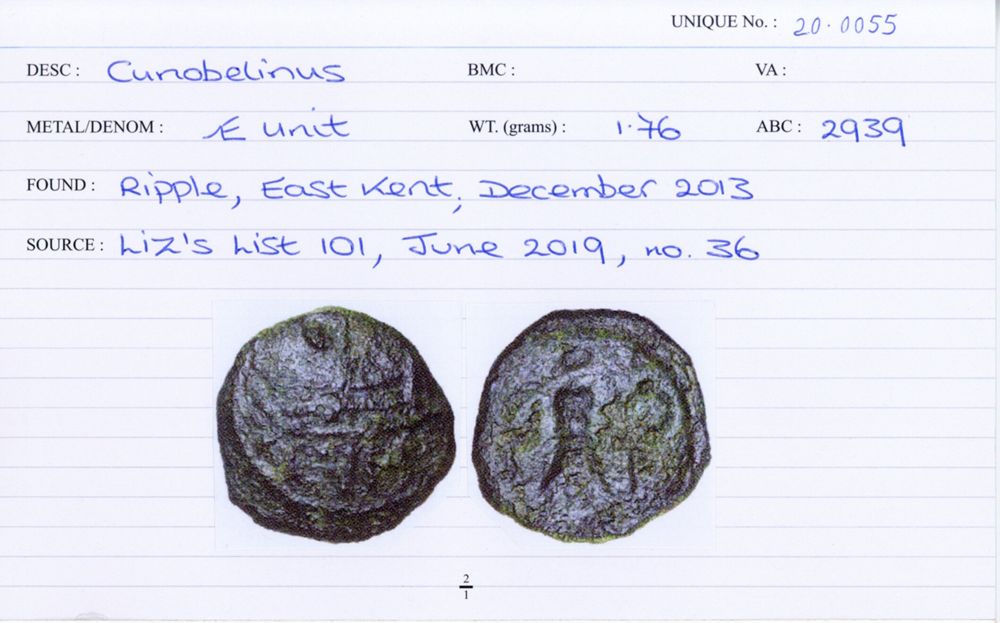 UNIQUE No. : 20.0055
DESC : Cunobelinus BMC : VA :
METAL/DENOM : Æ Unit WT. (grams) : 1.76 ABC : 2939
FOUND : Ripple, East Kent, December 2013
SOURCE : Liz's List 101, June 2019, no. 36
2
1